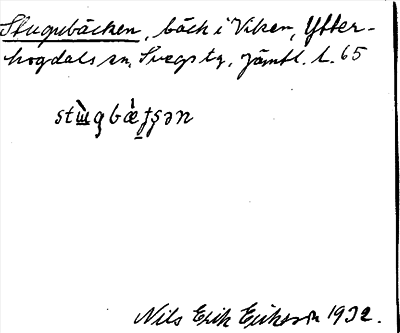 Stugubäcken, bäck i Viken, Ytter-
hogdals sn, Svegs tg, Jämtl. l. 65
Nils Erik Eriksson 1932.